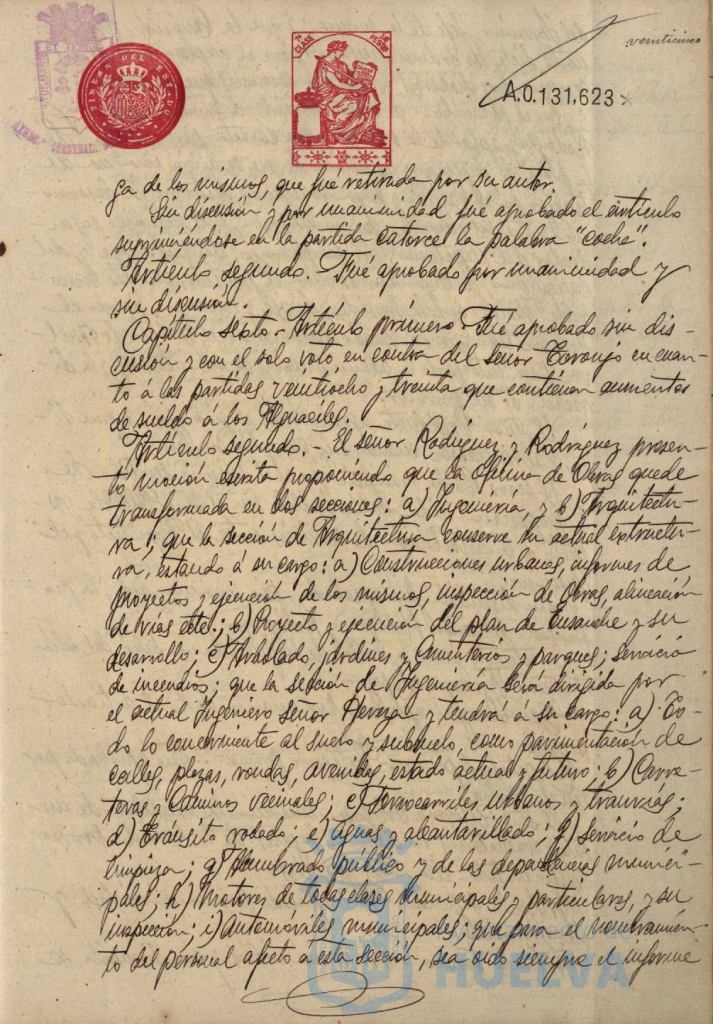 veinticinco
TIMBRE DEL ESTADO
7ª CLASE
A.0.131,623
ga de los mismos, que fué retirada por su autor.
Sin discusión y por unanimidad fué aprobado el artículo
suprimiéndose en la partida catorce la palabra "coche".
Artículo segundo.- Fué aprobado por unanimidad y
sin discusión.
Capítulo sexto.- Artículo primero.- Fué aprobado sin dis-
cusión y con el solo voto en contra del señor Toronjo en cuan-
to á las partidas veintiocho y treinta que contienen aumentos
de sueldo á los Alguaciles.
Artículo segundo.- El señor Rodríguez y Rodríguez presen-
tó moción escrita proponiendo que la Oficina de Obras quede
transformada en dos secciones: a) Ingeniería, y b) Arquitectu-
ra; que la sección de Arquitectura conserve su actual extructu-
ra, estando á su cargo: a) Construcciones urbanas, informes de
proyectos y ejecución de los mismos, inspección de Obras, alineación
de vías etc.; b) Proyecto y ejecución del plan de Ensanche y su
desarrollo; c) Arbolado, jardines y Cementerios y parques; servicio
de incendios; que la sección de Ingeniería será dirigida por
el actual Ingeniero Señor y tendrá á su cargo: a) To-
do lo concerniente al suelo y subsuelo, como pavimentación de
calles, plazas, rondas, avenidas, estado actual y futuro; b) Carre-
teras y Caminos vecinales; c) Ferrocarriles urbanos y tranvías;
d) Tránsito rodado; e) Aguas y alcantarillado; f) Servicio de
limpieza; g) Alumbrado público y de las dependencias munici-
pales; h) Motores de todas clases municipales y particulares, y su
inspección; i) Automóviles municipales; que para el nombramien-
to del personal afecto á esta sección, sea oído siempre el informe
HUELVA